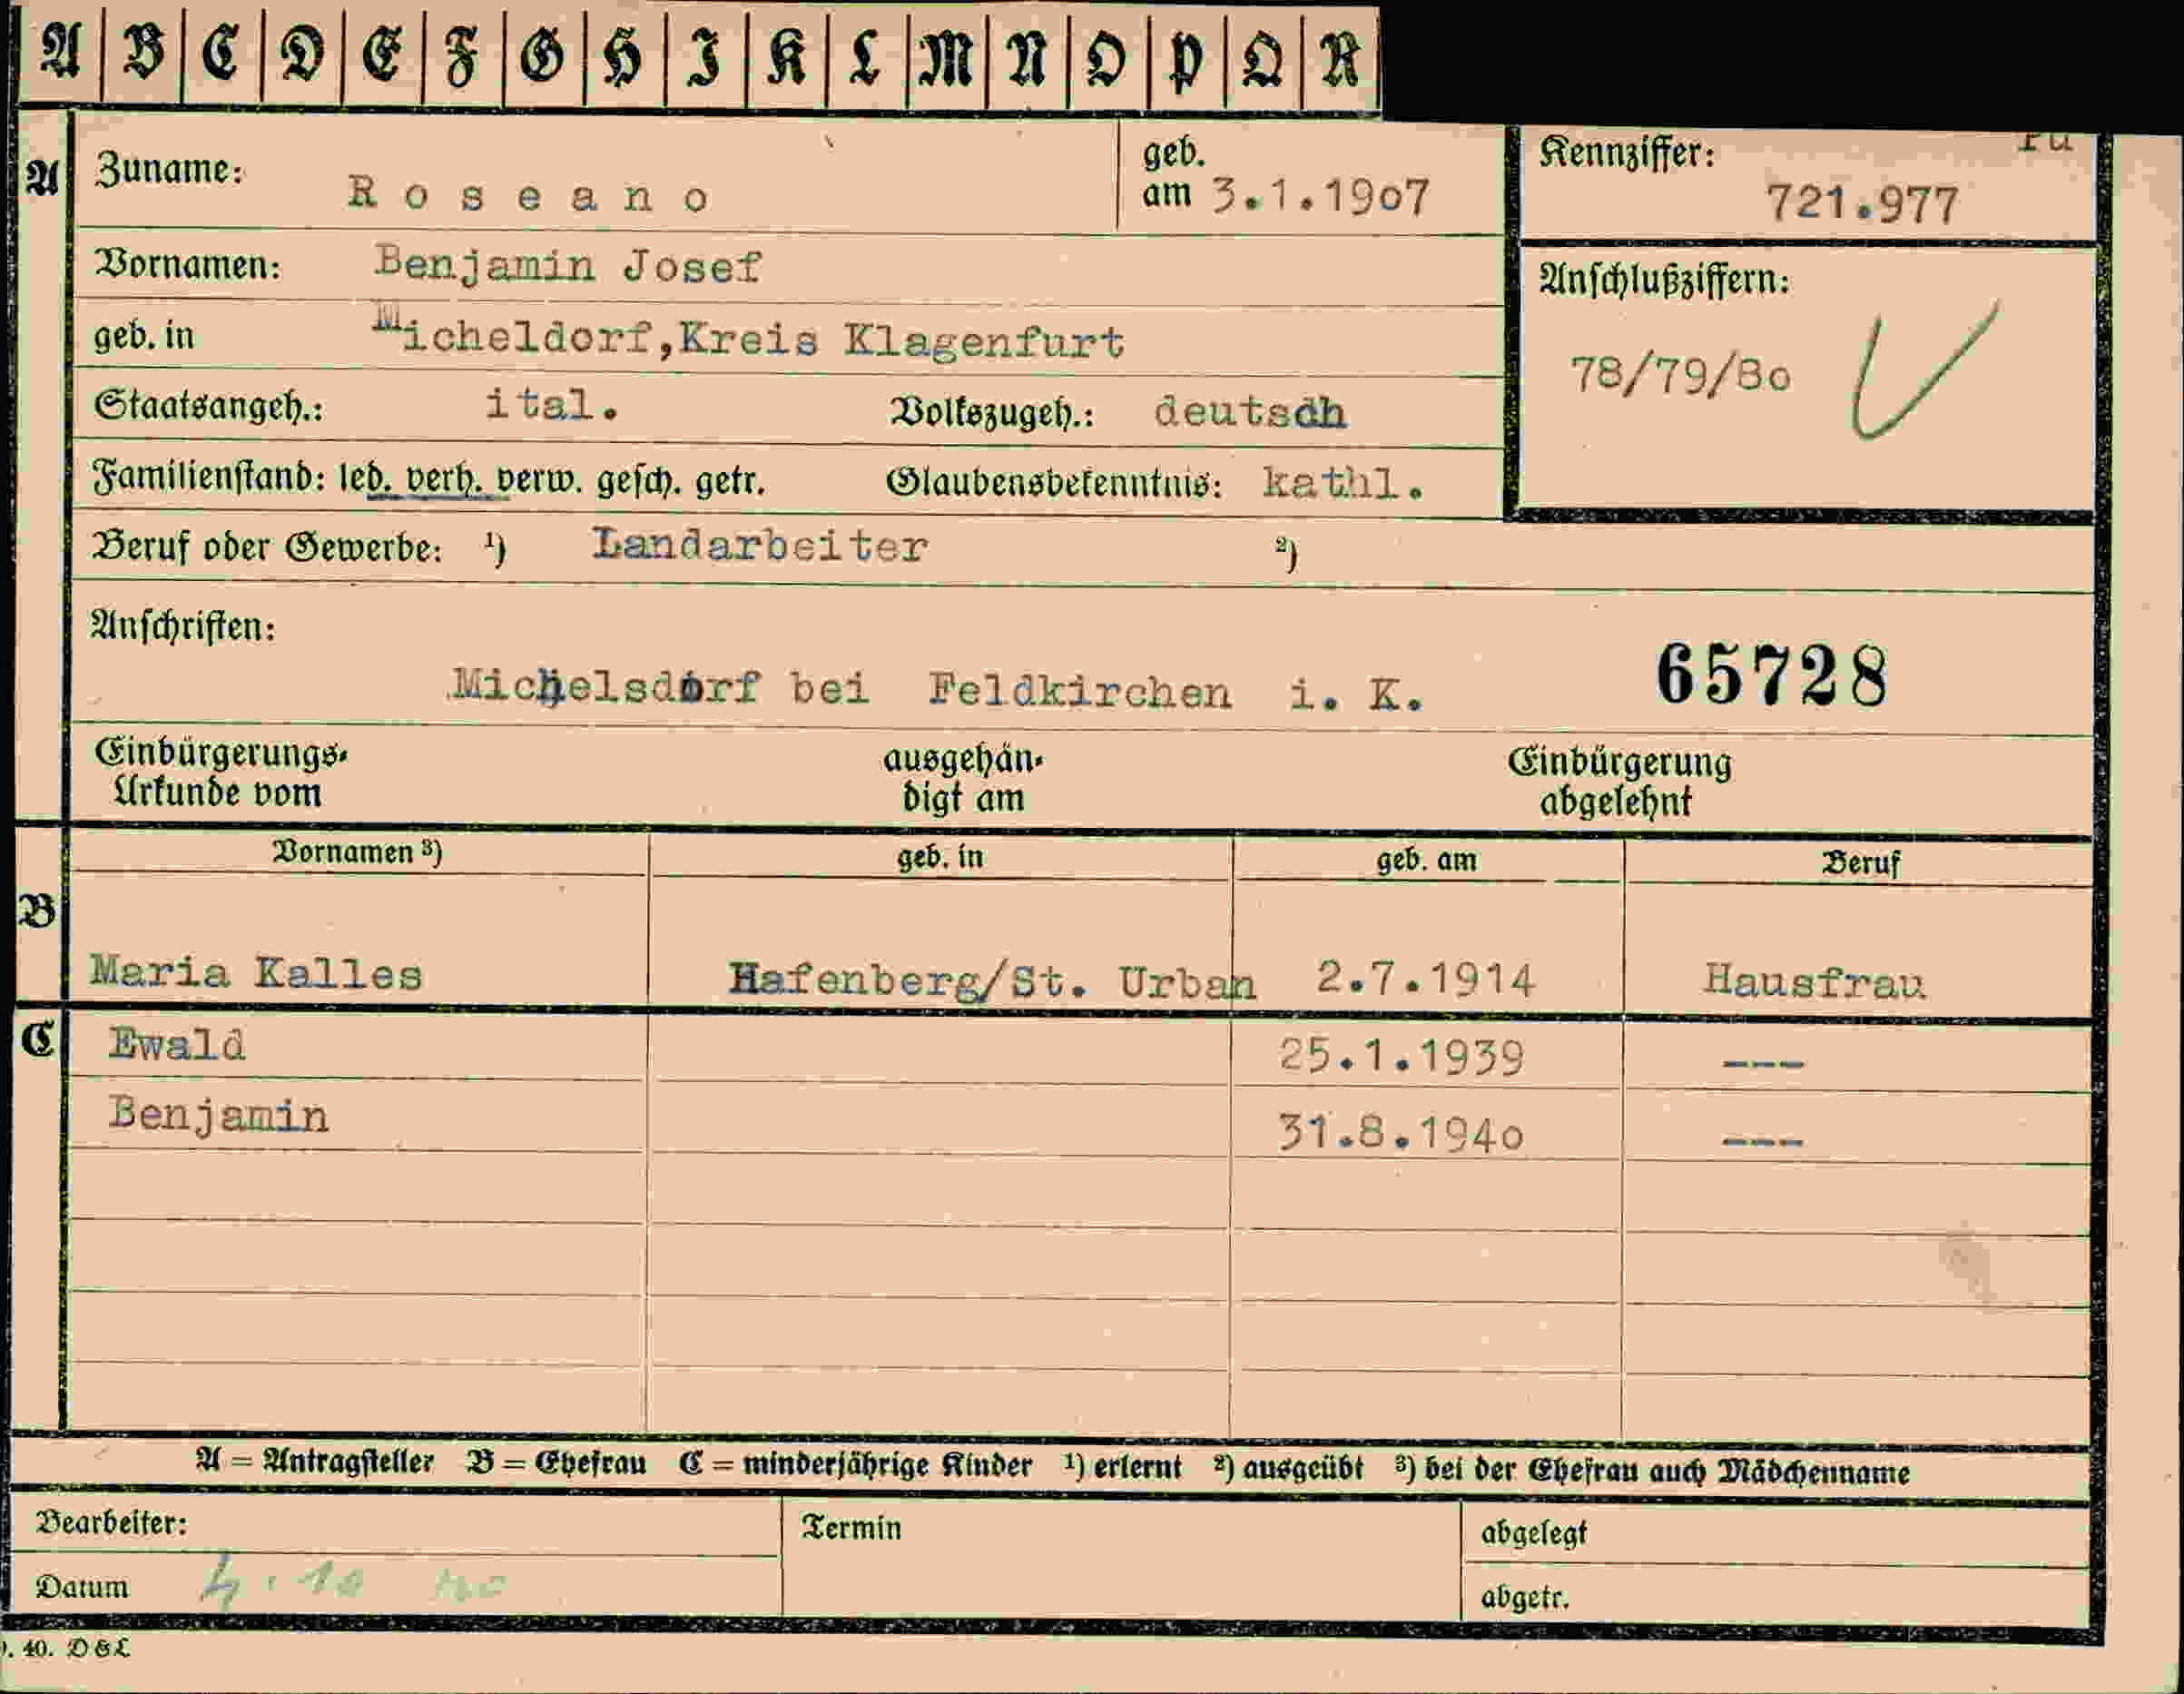 A B C D E F G H I K L M N O P Q R
A Zuname: Roseano geb. am 3.1.19o7 Kennziffer: 721.977
Vornamen: Benjamin Josef
geb. in Micheldorf,Kreis Klagenfurt
Anschlußziffern: 78/79/8o
Staatsangeh.: ital. Volkszugeh.: deutsch
Familienstand: led. verh. verw. gesch. getr. Glaubensbekenntnis: kathl.
Beruf oder Gewerbe: ¹) Landarbeiter ²)
Anschriften:
Michelsdorf bei Feldkirchen i. K. 65728
Einbürgerungs- Urkunde vom ausgehän- digt am Einbürgerung abgelehnt
Vornamen ³) geb. in geb. am Beruf
B Maria Kalles Hafenberg/St. Urban 2.7.1914 Hausfrau
C Ewald 25.1.1939 ---
Benjamin 31.8.194o ---
A = Antragsteller B = Ehefrau C = minderjährige Kinder ¹) erlernt ²) ausgeübt ³) bei der Ehefrau auch Mädchenname
Bearbeiter: Termin abgelegt
Datum 4.10 40 abgetr.
40. D & L